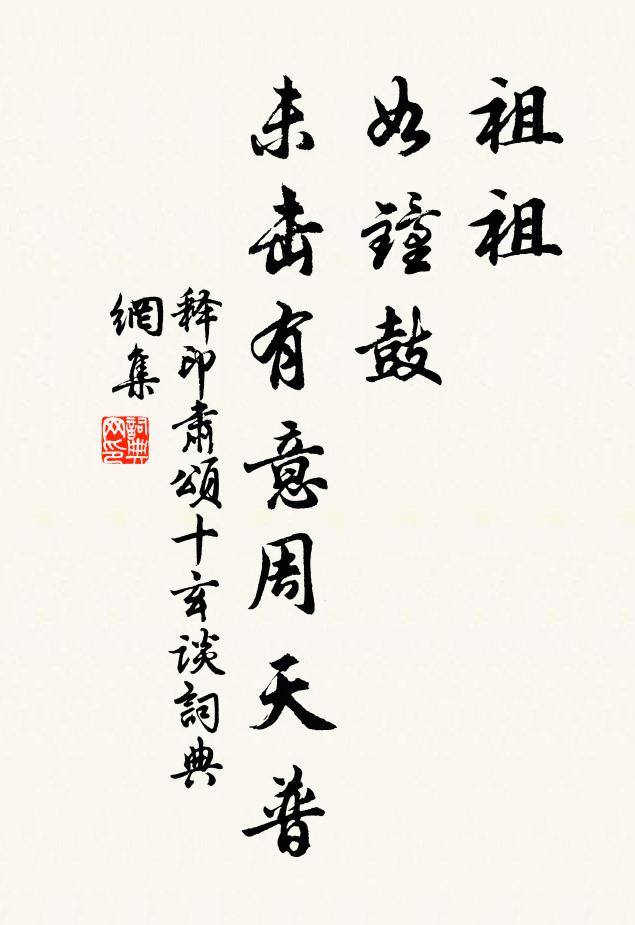 祖祖
如鐘鼓
未击有意周天普
释印肅頌十玄谈詞典
網集
詞典
网印